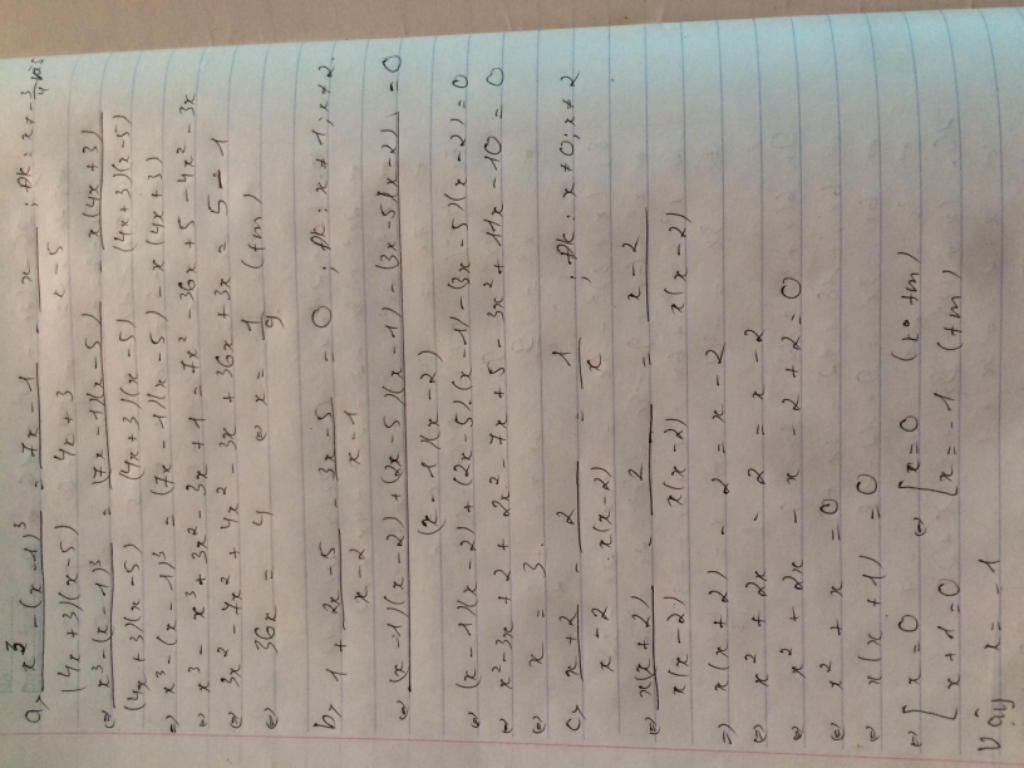 a, x³ - (x-1)³ / (4x+3)(x-5) = 7x-1 / 4x+3 - x / x-5 ; ĐK: x ≠ -3/4
⇔ x³-(x-1)³ / (4x+3)(x-5) = (7x-1)(x-5) / (4x+3)(x-5) - x(4x+3) / (4x+3)(x-5)
⇒ x³-(x-1)³ = (7x-1)(x-5) - x(4x+3)
⇔ x³ - x³ + 3x² - 3x + 1 = 7x² - 36x + 5 - 4x² - 3x
⇔ 3x² - 7x² + 4x² - 3x + 36x + 3x = 5 - 1
⇔ 36x = 4 ⇔ x = 1/9 (tm)
b, 1 + 2x-5 / x-2 - 3x-5 / x-1 = 0 ; ĐK: x ≠ 1; x ≠ 2.
⇔ (x-1)(x-2) + (2x-5)(x-1) - (3x-5)(x-2) / (x-1)(x-2) = 0
⇔ (x-1)(x-2) + (2x-5)(x-1) - (3x-5)(x-2) = 0
⇔ x² - 3x + 2 + 2x² - 7x + 5 - 3x² + 11x - 10 = 0
⇔ x = 3
c, x+2 / x-2 - 2 / x(x-2) = 1 / x ; ĐK: x ≠ 0; x ≠ 2
⇔ x(x+2) / x(x-2) - 2 / x(x-2) = x-2 / x(x-2)
⇒ x(x+2) - 2 = x-2
⇔ x² + 2x - 2 = x-2
⇔ x² + 2x - x - 2 + 2 = 0
⇔ x² + x = 0
⇔ x(x+1) = 0
⇔ [ x = 0 ⇔ [ x = 0 (k° tm)
x+1 = 0 x = -1 (tm)
Vậy x = -1